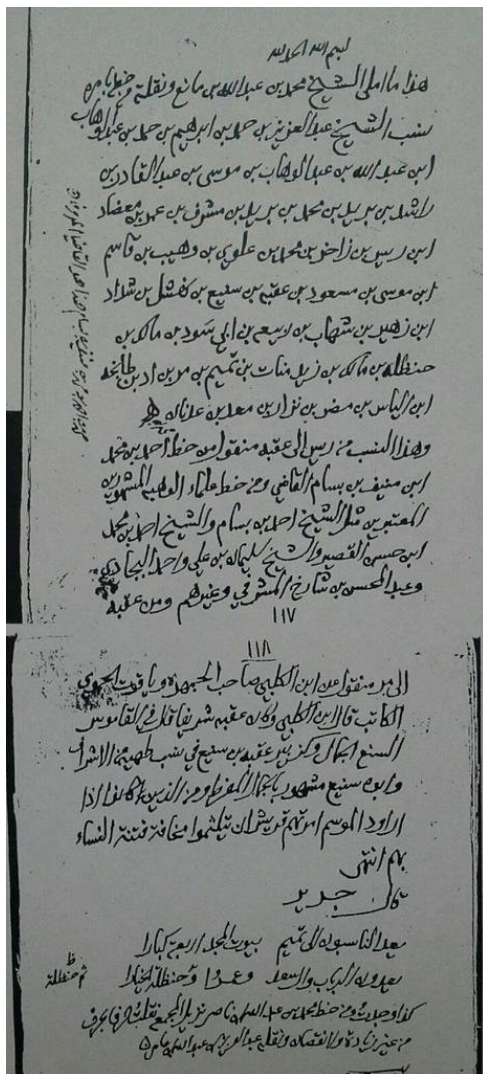 بسم الله الحمد لله
هذا ما املى الشيخ محمد بن عبدالله بن مانع ونقلته
نسب الشيخ عبدالعزيز بن حمد بن ابرهيم بن حمد بن عبدالوهاب
ابن عبدالله بن عبدالوهاب بن موسى بن عبدالقادر بن
راشد بن بريد بن محمد بن بريد بن مشرف بن عمر بن معضاد
ابن ريس بن زاخر بن محمد بن علوي بن وهيب بن قاسم
ابن موسى بن مسعود بن عقبه بن سنيع بن نهشل بن شداد
ابن زهير بن شهاب بن ربيعه بن ابي سود بن مالك بن
حنظله بن مالك بن زيد منات بن تميم بن مر بن اد بن طابخه
ابن الياس بن مضر بن نزار بن معد بن عدنان
وهذا النسب من ريس الى عقبه منقول من خط احمد بن محمد
ابن منيف بن بسام القاضي ومن خط علماء الوهبه المشهورين
المعتبرين مثل الشيخ احمد بن بسام والشيخ احمد بن محمد
ابن حسن القصير والشيخ سليمان بن علي واحمد البجادي
وعبدالمحسن بن شارخ المشرفي وغيرهم ومن عقبه
١١٧
١١٨
الى مر منقول عن ابن الكلبي صاحب الجمهرة وياقوت الحموي
الكاتب قال ابن الكلبي وكان عقبه شريفا قال في القاموس
السنع الجمال وكزبير عقبه بن سنيع في نسب طهيه من الاشراف
وابوه سنيع مشهور بالجمال المفرط ومن الذين كانوا اذا
ارادوا الموسم امرتهم قريش ان يتلثموا مخافة فتنة النساء
بهم انتهى
قال جرير
يعد الناسبون الى تميم بيوت المجد اربعة كبارا
يعدون الرباب وال سعد وعمرا ثم حنظلة الخيارا
ثم حنظلة
كذا وجدت من خط محمد بن عبدالله بن ناصر نزيل المجمع نقلته حرفا بحرف
من غير زيادة ولا نقصان ونقله عبدالعزيز بن عبدالله بن عامر